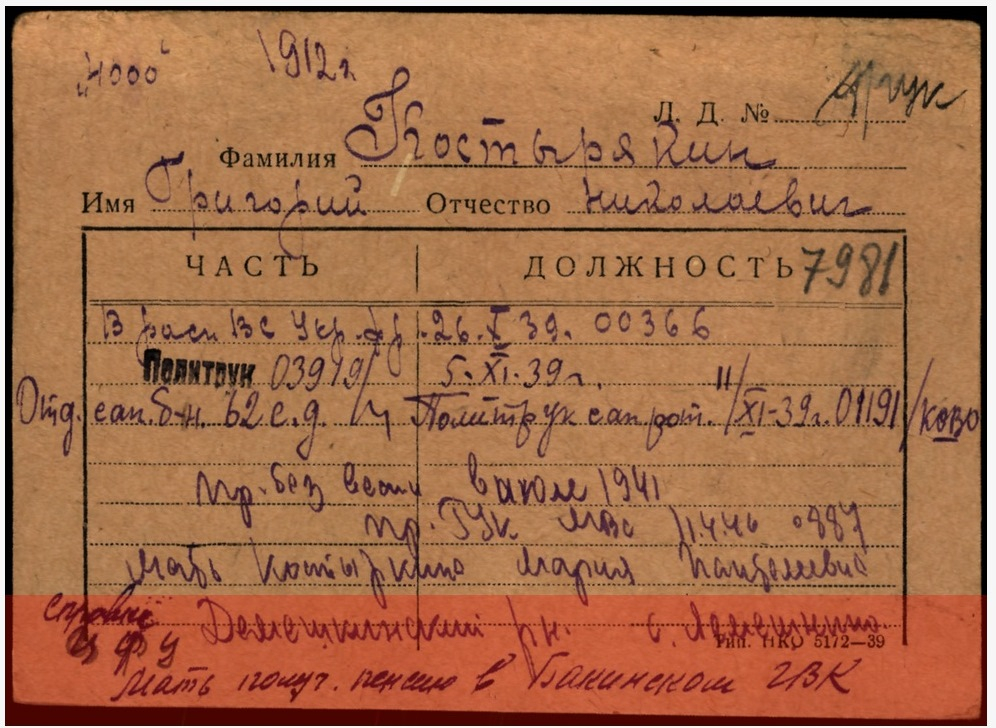 "4000" 1912г
Л. Д. №
Фамилия Костырякин
Имя Григорий Отчество Николаевич
ЧАСТЬ ДОЛЖНОСТЬ 7981
В расп ВС Укр. фр. 26.X 39. 00366
Политрук 03919/ 5.XI.39г.
Отд. сап. б-н. 62 с.д. /ч Политрук сап. рот. 11/XI-39г. 01191/КОВО
пр. без вести в июле 1941
пр. ГУК МВС 11.4.46 0887
Мать Костыркина Мария
справка Демешкинский р-н. с.
ЦФУ Тип. НКО 5172—39
Мать получ. пенсию в Бакинском ГВК